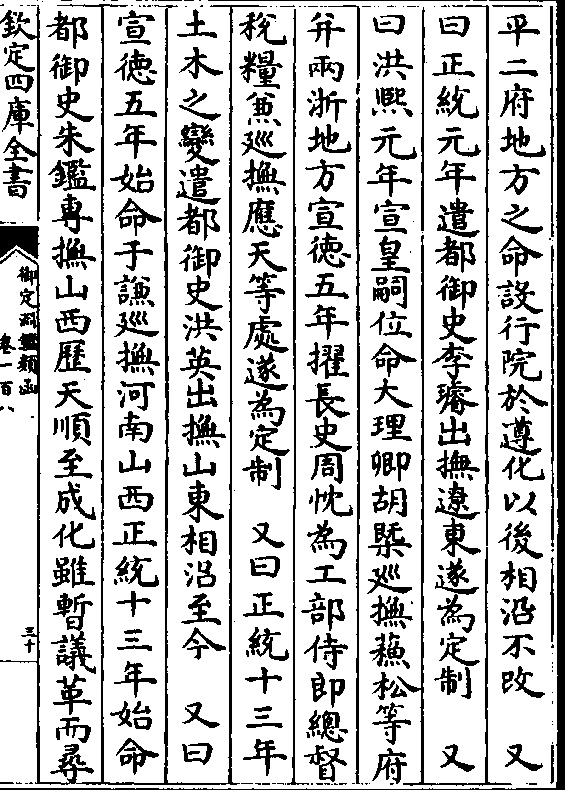 平二府地方之命設行院於遵化以後相沿不改　又
曰正統元年遣都御史李濬出撫遼東遂為定制　又
曰洪熙元年宣皇嗣位命大理卿胡㮣廵撫蘓松等府
并兩浙地方宣徳五年擢長史周忱為工部侍郎總督
稅糧兼廵撫應天等處遂為定制　又曰正統十三年
土木之變遣都御史洪英出撫山東相沿至今　又曰
宣徳五年始命于謙廵撫河南山西正統十三年始命
都御史朱鑑専撫山西歷天順至成化雖暫議革而尋
欽定四庫全書
御定淵鑑類函
卷一百八
三十